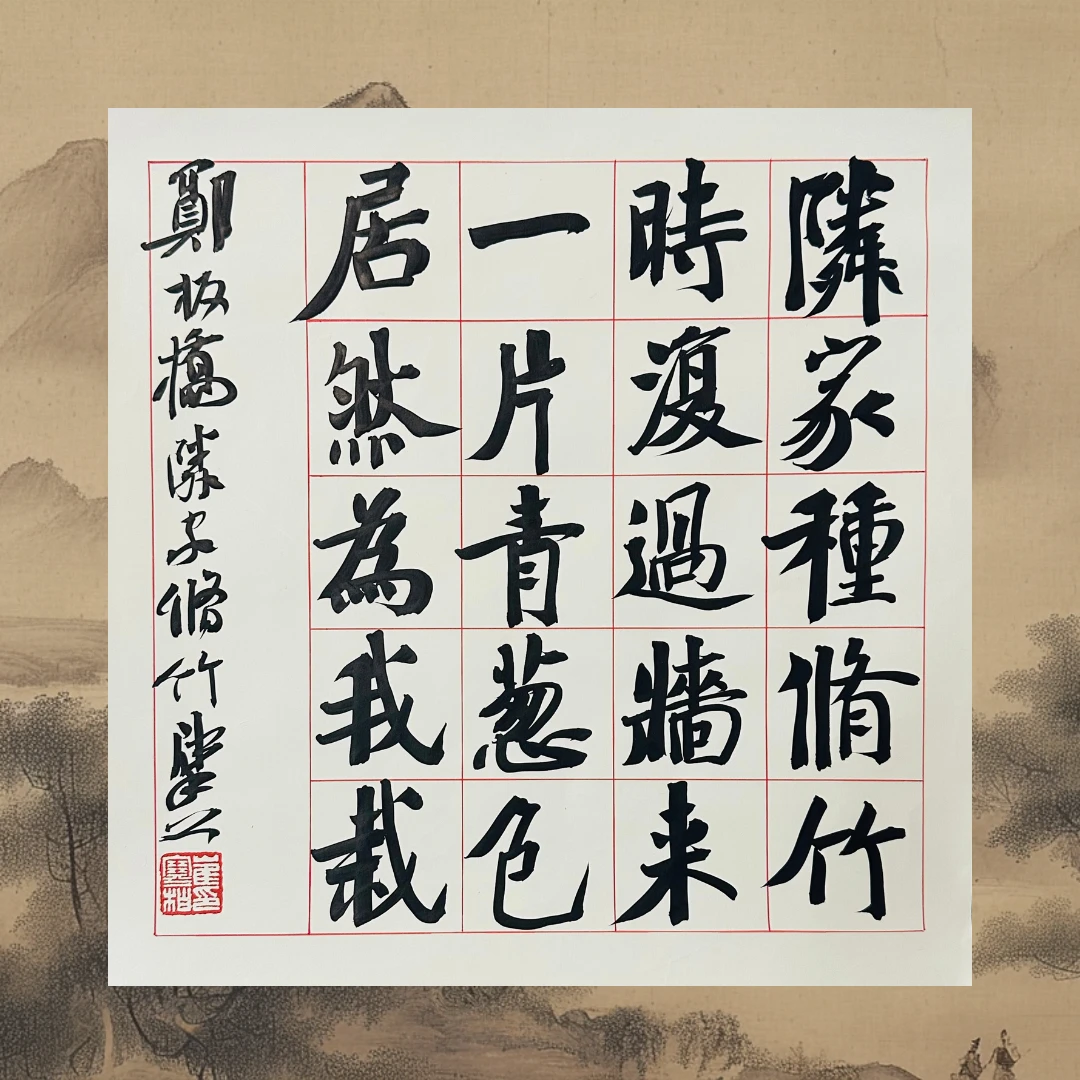 隣家種脩竹
時復過牆来
一片青葱色
居然為我栽
鄭板橋隣家脩竹